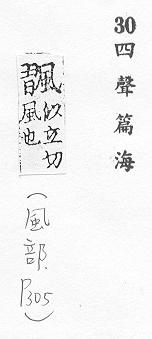 30 四聲篇海
似立切
風也
(風部. P305)